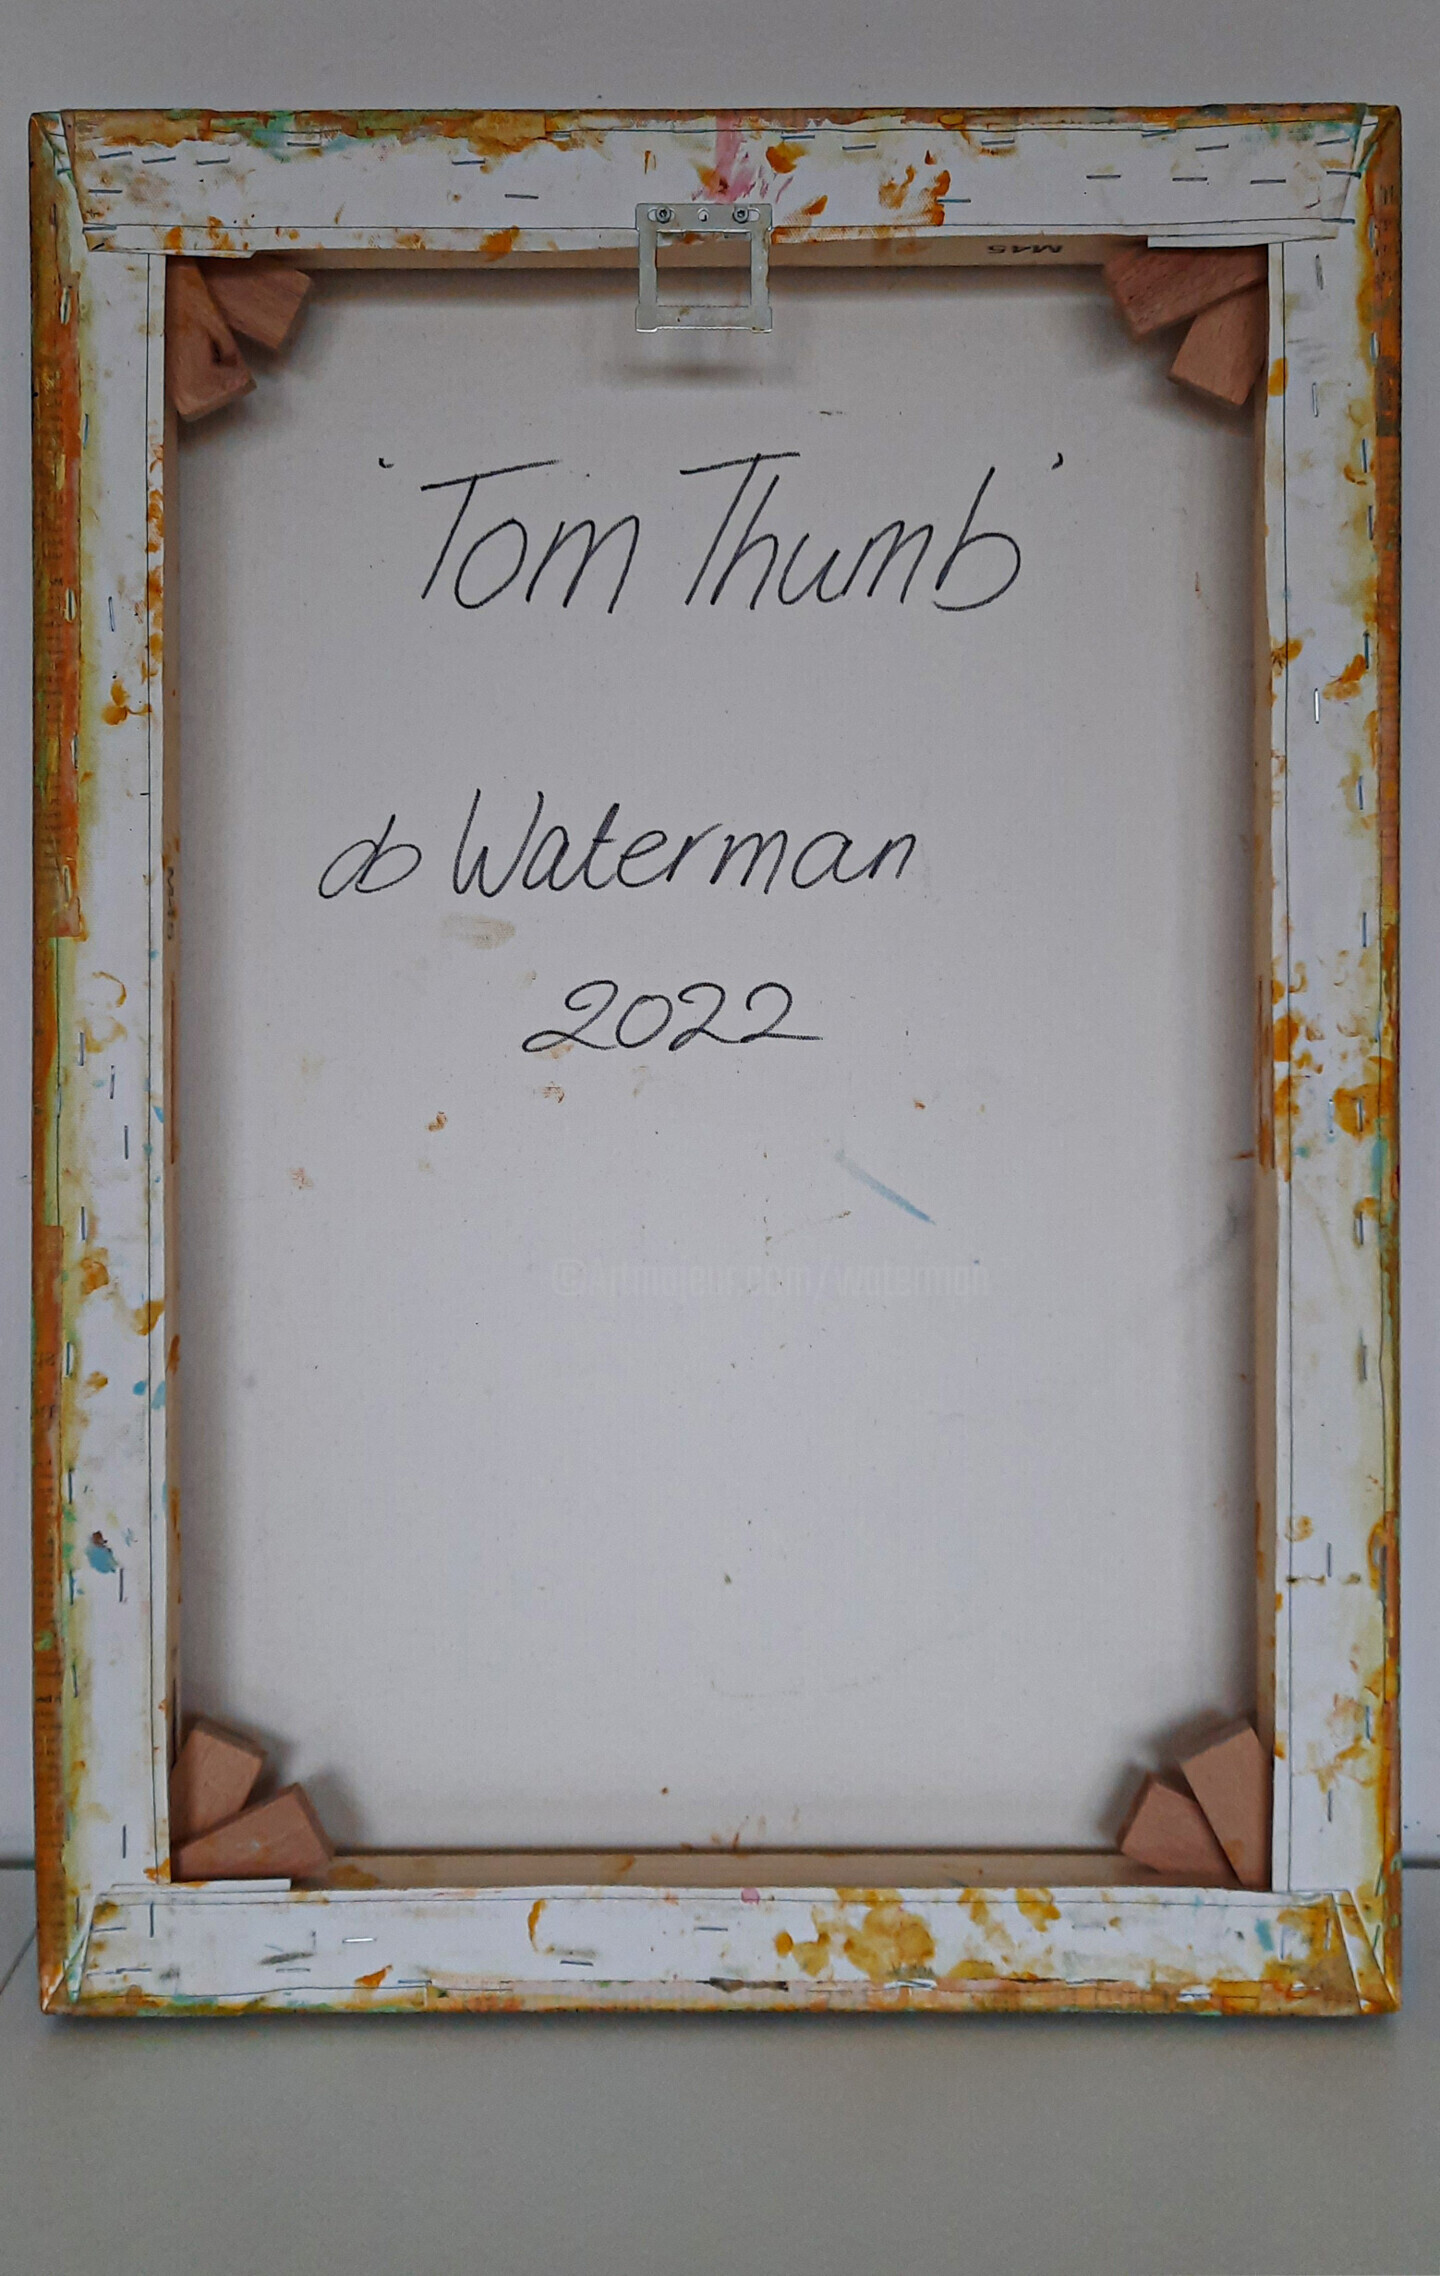 M45
'Tom Thumb'
db Waterman
2022
©Artmajeur.com/waterman